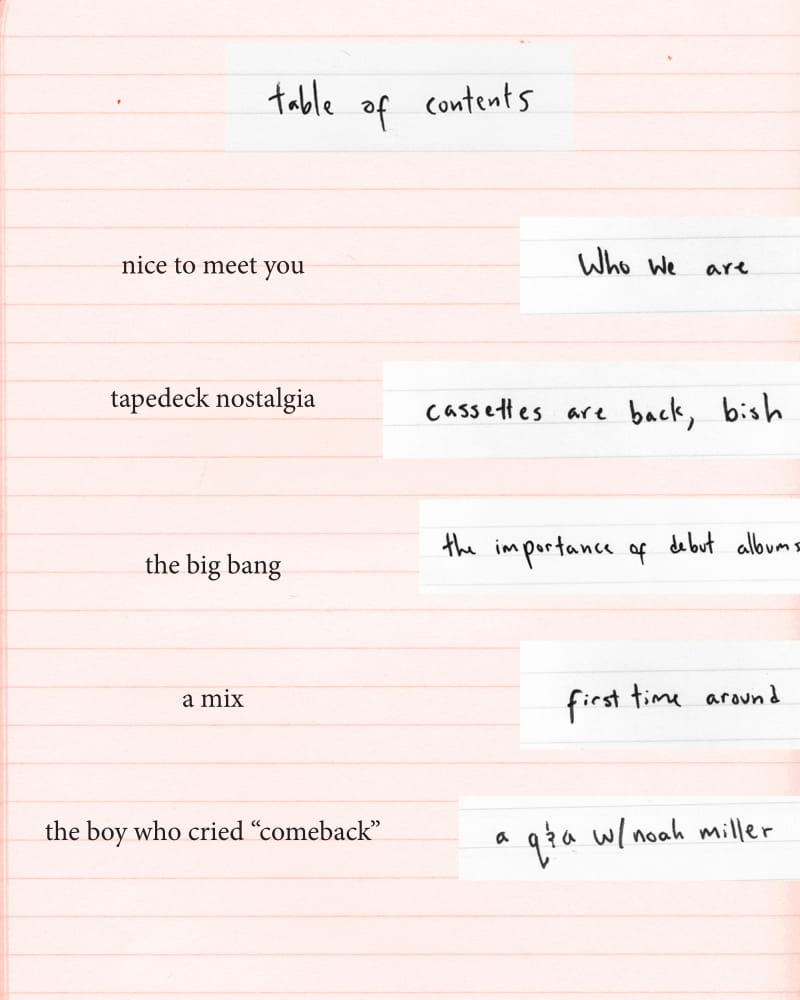 table of contents
nice to meet you
Who we are
tapedeck nostalgia
cassettes are back, bish
the big bang
the importance of debut albums
a mix
first time around
the boy who cried “comeback”
a q&a w/ noah miller